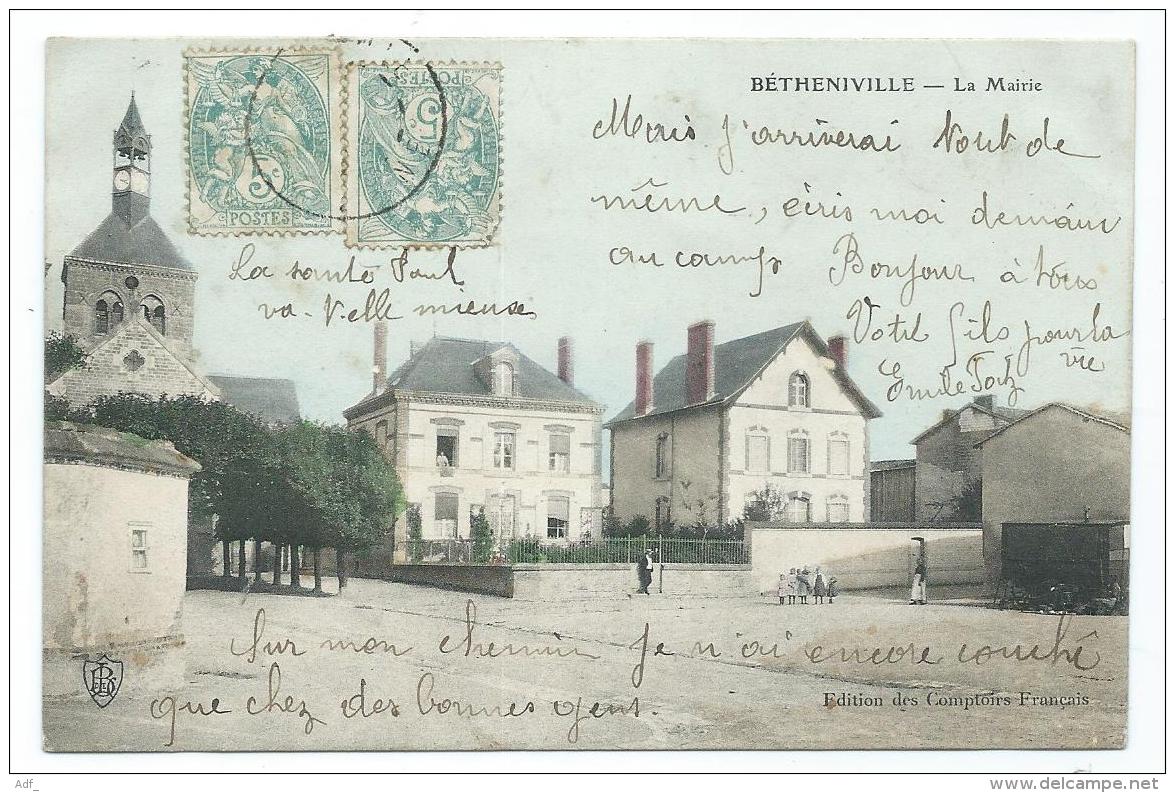 BÉTHENIVILLE — La Mairie
5c
POSTES
5c
POSTES
Mais j'arriverai tout de
même, écris moi demain
au camp Bonjour à tous
Votre fils pour la
vie
Emile
La santé Paul
va-t-elle mieux
Sur mon chemin je n'ai encore couché
que chez des bonnes gens.
Edition des Comptoirs Français
Adf_
www.delcampe.net